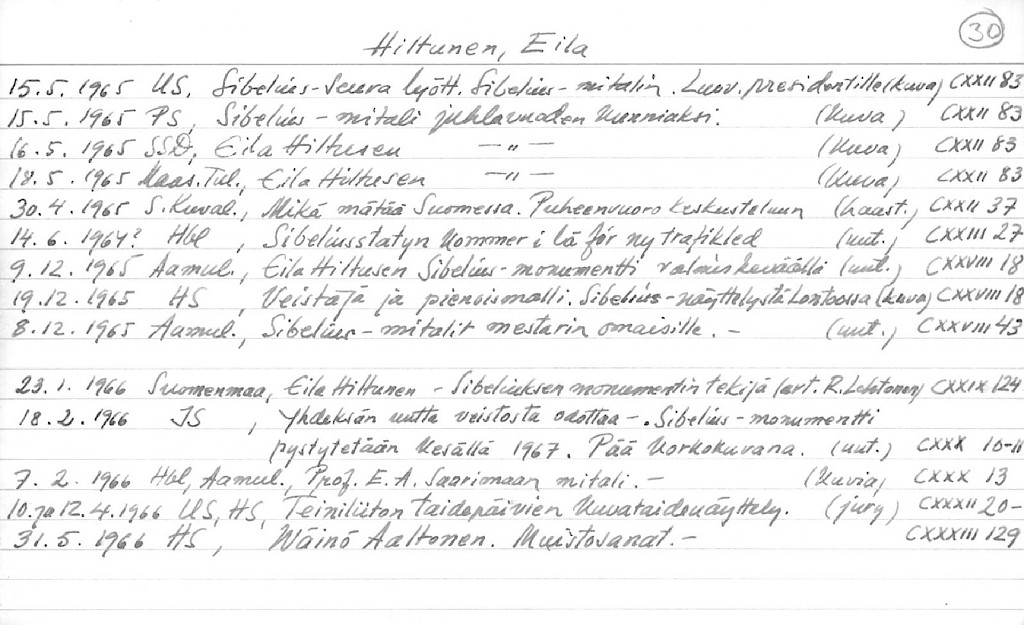 30
Hiltunen, Eila
15.5. 1965 US, Sibelius-Seura lyött. Sibelius-mitalin. Luov. presidentille (kuva) CXXII 83
15.5. 1965 PS, Sibelius-mitali juhlavuoden kunniaksi. (kuva) CXXII 83
16.5. 1965 SSD, Eila Hiltusen —"— (kuva) CXXII 83
18.5. 1965 Maas.Tul., Eila Hiltusen —"— (kuva) CXXII 83
30.4. 1965 S.Kuval., Mikä mätää Suomessa. Puheenvuoro keskusteluun (haast.) CXXII 37
14.6. 1964? Hbl, Sibeliusstatyn kommer i lä för ny trafikled (uut.) CXXIII 27
9.12. 1965 Aamul., Eila Hiltusen Sibelius-monumentti valmis keväällä (uut.) CXXVIII 18
19.12. 1965 HS, Veistäjä ja pienoismalli. Sibelius-näyttelystä Lontoossa (kuva) CXXVIII 18
8.12. 1965 Aamul., Sibelius-mitalit mestarin omaisille. - (uut.) CXXVIII 43
23.1. 1966 Suomenmaa, Eila Hiltunen - Sibeliuksen monumentin tekijä (art. R. Lehtonen) CXXIX 124
18.2. 1966 IS, Yhdeksän uutta veistosta odottaa -. Sibelius-monumentti
pystytetään kesällä 1967. Pää korkokuvana. (uut.) CXXX 10-11
7.2. 1966 Hbl, Aamul., Prof. E.A. Saarimaan mitali. - (kuvia) CXXX 13
10. ja 12.4.1966 US, HS, Teiniliiton Taidepäivien kuvataidenäyttely. (jury) CXXXII 20-
31.5. 1966 HS, Wäinö Aaltonen. Muistosanat. - CXXXIII 129